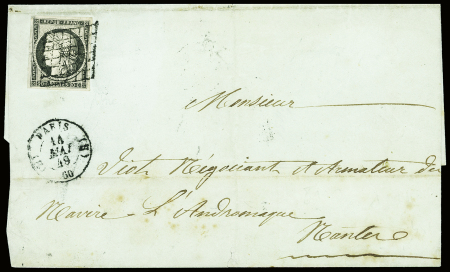 REPUB. FRANC.
PARIS
14
MAI
49
(60)
Monsieur
Viot Négociant et Armateur du
Navire L'Andromaque
Nantes